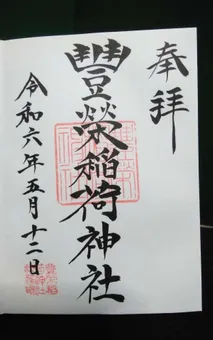 奉拝
豐榮稲荷神社
令和六年五月十二日